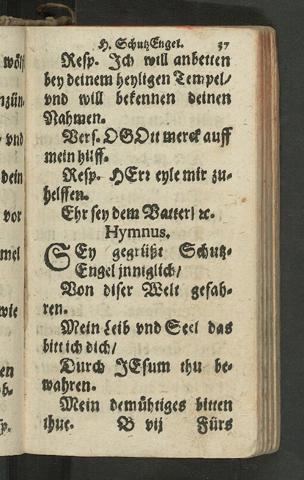 H. SchutzEngel. 37
Resp. Jch will anbetten
bey deinem heyligen Tempel/
vnd will bekennen deinen
Nahmen.
Vers. O GOtt merck auff
mein hülff.
Resp. HErr eyle mir zu-
helffen.
Ehr sey dem Vatter/ ꝛc.
Hymnus.
SEy gegrüßt Schutz-
Engel jnniglich/
Von diser Welt gefah-
ren.
Mein Leib vnd Seel das
bitt ich dich/
Durch JEsum thu be-
wahren.
Mein demühtiges bitten
thue. B vij Fürs
wölf
nzün-
dein
vor
mel
wie
ob-
sp.